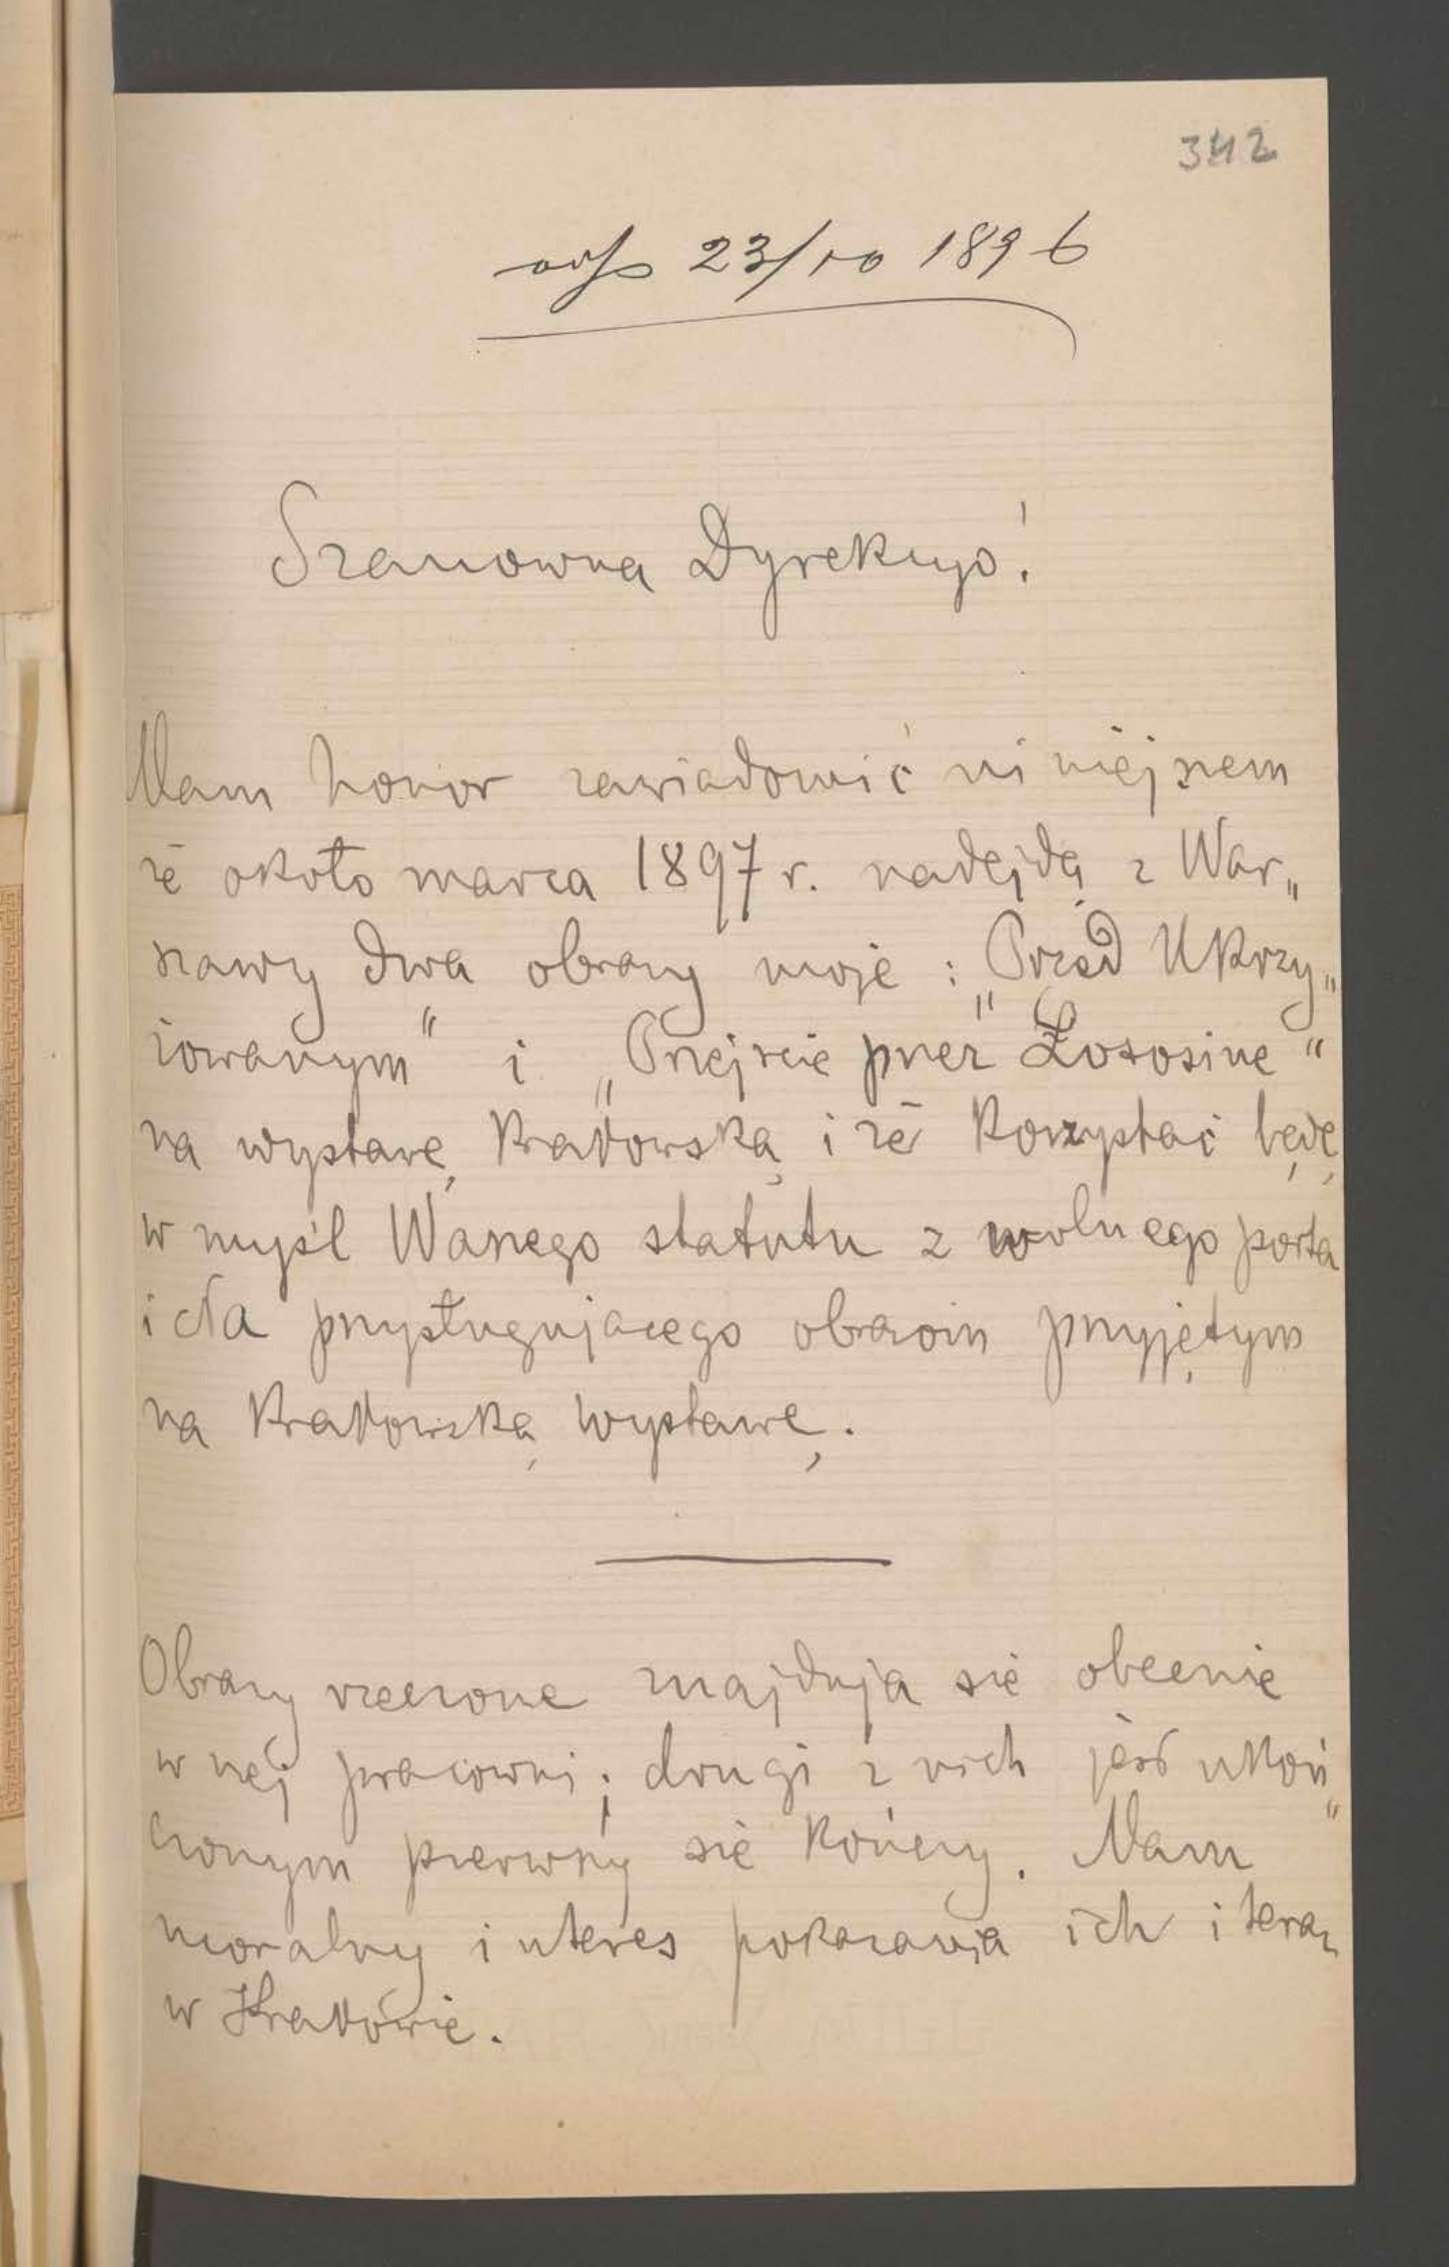 342
odp 23/10 1896
Szanowna Dyrekcyo!
Mam honor zawiadomić niniejszem
że około marca 1897 r. nadejdą z War„
szawy dwa obrazy moje : „Przed Ukrzy„
żowanym“ i „Przejście przez Łososinę“
na wystawę Krakowską i że korzystać będę
w myśl Waszego statutu z wolnego porta
i cła przysługującego obrazom przyjętym
na Krakowską wystawę.
Obrazy rzeczone znajdują się obecnie
w mej pracowni; drugi z nich jest ukoń„
czonym pierwszy się kończy. Mam
moralny interes pokazania ich i teraz
w Krakowie.